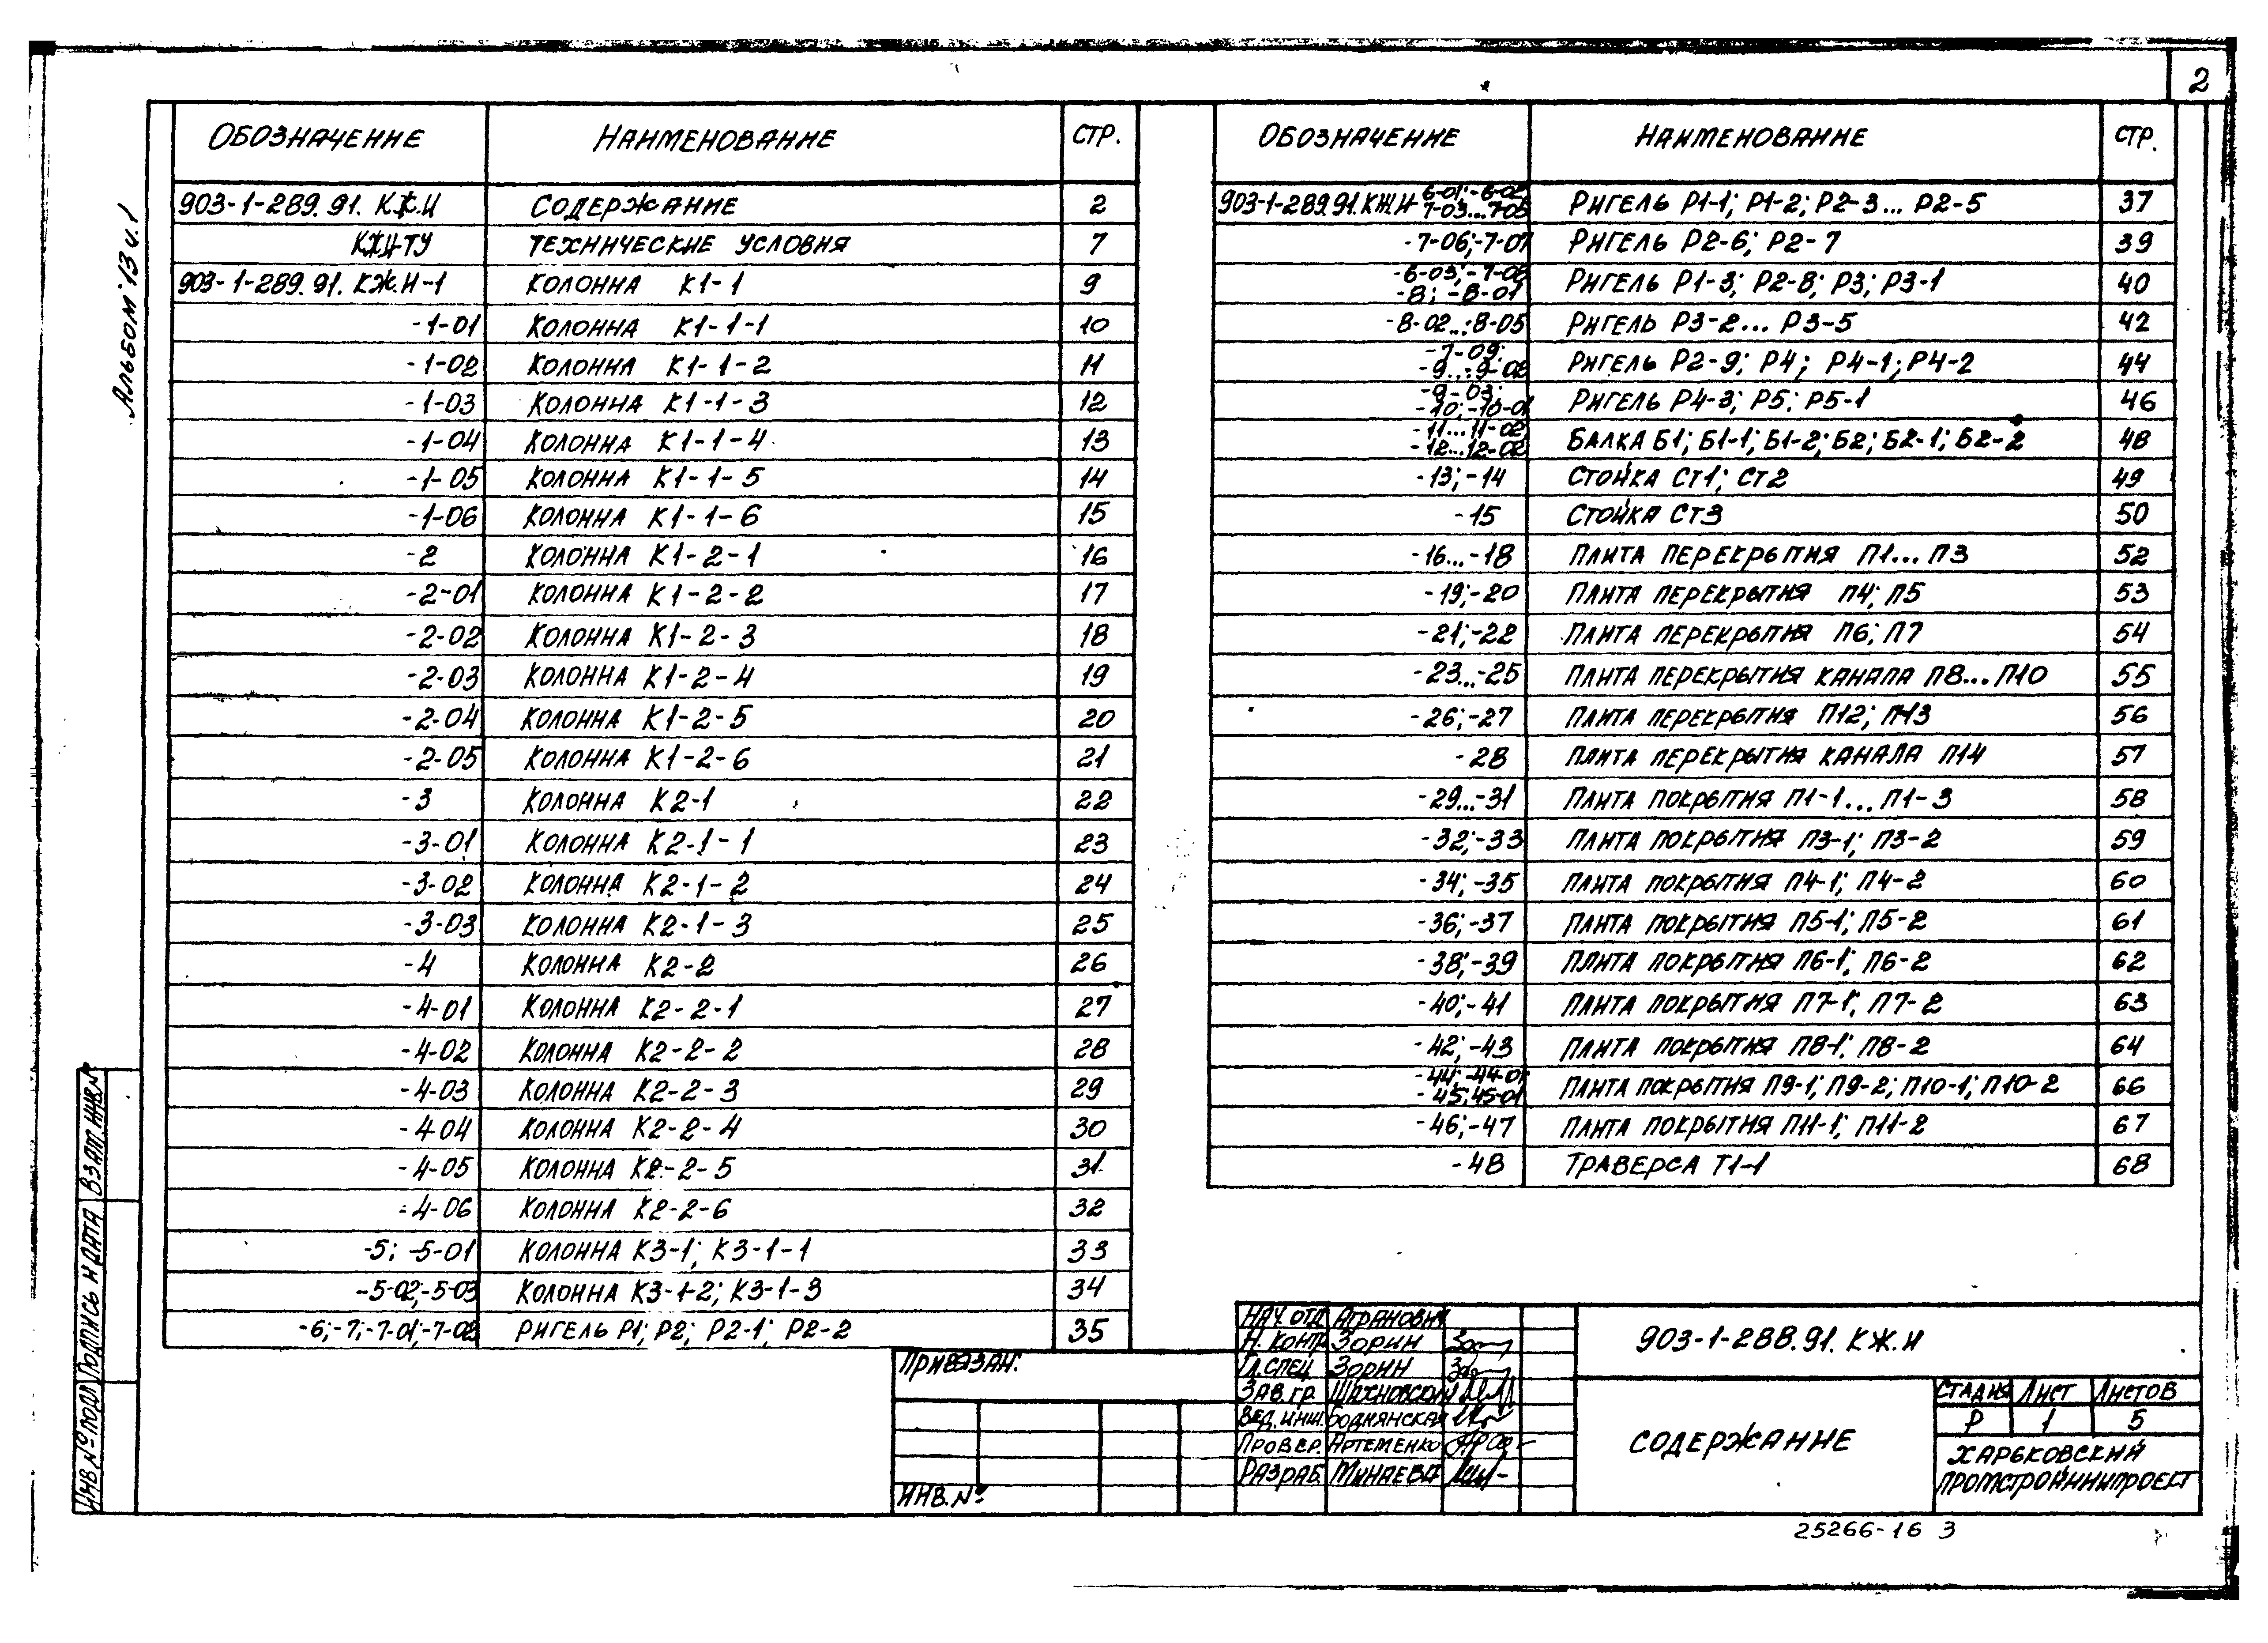 2
Альбом 13 ч.1
ОБОЗНАЧЕНИЕ НАИМЕНОВАНИЕ СТР.
903-1-289.91. КЖ.И СОДЕРЖАНИЕ 2
КЖИ-ТУ ТЕХНИЧЕСКИЕ УСЛОВИЯ 7
903-1-289.91. КЖ.И-1 КОЛОННА К1-1 9
-1-01 КОЛОННА К1-1-1 10
-1-02 КОЛОННА К1-1-2 11
-1-03 КОЛОННА К1-1-3 12
-1-04 КОЛОННА К1-1-4 13
-1-05 КОЛОННА К1-1-5 14
-1-06 КОЛОННА К1-1-6 15
-2 КОЛОННА К1-2-1 16
-2-01 КОЛОННА К1-2-2 17
-2-02 КОЛОННА К1-2-3 18
-2-03 КОЛОННА К1-2-4 19
-2-04 КОЛОННА К1-2-5 20
-2-05 КОЛОННА К1-2-6 21
-3 КОЛОННА К2-1 22
-3-01 КОЛОННА К2-1-1 23
-3-02 КОЛОННА К2-1-2 24
-3-03 КОЛОННА К2-1-3 25
-4 КОЛОННА К2-2 26
-4-01 КОЛОННА К2-2-1 27
-4-02 КОЛОННА К2-2-2 28
-4-03 КОЛОННА К2-2-3 29
-4-04 КОЛОННА К2-2-4 30
-4-05 КОЛОННА К2-2-5 31
-4-06 КОЛОННА К2-2-6 32
-5; -5-01 КОЛОННА К3-1; К3-1-1 33
-5-02;-5-03 КОЛОННА К3-1-2; К3-1-3 34
-6;-7;-7-01;-7-02 РИГЕЛЬ Р1; Р2; Р2-1; Р2-2 35
ОБОЗНАЧЕНИЕ НАИМЕНОВАНИЕ СТР.
903-1-289.91.КЖ.И- 6-01;-6-02 7-03...7-05 РИГЕЛЬ Р1-1; Р1-2; Р2-3... Р2-5 37
-7-06;-7-07 РИГЕЛЬ Р2-6; Р2-7 39
-6-03;-7-08 -8; -8-01 РИГЕЛЬ Р1-3; Р2-8; Р3; Р3-1 40
-8-02...8-05 РИГЕЛЬ Р3-2... Р3-5 42
-7-09; -9...9-02 РИГЕЛЬ Р2-9; Р4; Р4-1; Р4-2 44
-9-03; -10;-10-01 РИГЕЛЬ Р4-3; Р5; Р5-1 46
-11...11-02 -12...12-02 БАЛКА Б1; Б1-1; Б1-2; Б2; Б2-1; Б2-2 48
-13;-14 СТОЙКА СТ1; СТ2 49
-15 СТОЙКА СТ3 50
-16...-18 ПЛИТА ПЕРЕКРЫТИЯ П1... П3 52
-19;-20 ПЛИТА ПЕРЕКРЫТИЯ П4; П5 53
-21;-22 ПЛИТА ПЕРЕКРЫТИЯ П6; П7 54
-23...-25 ПЛИТА ПЕРЕКРЫТИЯ КАНАЛА П8...П10 55
-26;-27 ПЛИТА ПЕРЕКРЫТИЯ П12; П13 56
-28 ПЛИТА ПЕРЕКРЫТИЯ КАНАЛА П14 57
-29...-31 ПЛИТА ПОКРЫТИЯ П1-1... П1-3 58
-32;-33 ПЛИТА ПОКРЫТИЯ П3-1; П3-2 59
-34;-35 ПЛИТА ПОКРЫТИЯ П4-1; П4-2 60
-36;-37 ПЛИТА ПОКРЫТИЯ П5-1; П5-2 61
-38;-39 ПЛИТА ПОКРЫТИЯ П6-1; П6-2 62
-40;-41 ПЛИТА ПОКРЫТИЯ П7-1; П7-2 63
-42;-43 ПЛИТА ПОКРЫТИЯ П8-1; П8-2 64
-44;-44-01 -45;45-01 ПЛИТА ПОКРЫТИЯ П9-1; П9-2; П10-1; П10-2 66
-46;-47 ПЛИТА ПОКРЫТИЯ П11-1; П11-2 67
-48 ТРАВЕРСА Т1-1 68
ИНВ.№ПОДЛ ПОДПИСЬ И ДАТА ВЗАМ.ИНВ.№
ПРИВЯЗАН:
ИНВ.№
НАЧ.ОТД АГРАНОВИЧ
Н.КОНТР. ЗОРИН
ГЛ.СПЕЦ ЗОРИН
ЗАВ.ГР. ШАХНОВСКИЙ
ВЕД.ИНЖ. БОДНЯНСКАЯ
ПРОВЕР. АРТЕМЕНКО
РАЗРАБ. МИНАЕВА
903-1-288.91. КЖ.И
СОДЕРЖАНИЕ
СТАДИЯ ЛИСТ ЛИСТОВ
Р 1 5
ХАРЬКОВСКИЙ
ПРОМСТРОЙНИИПРОЕКТ
25266-16 3